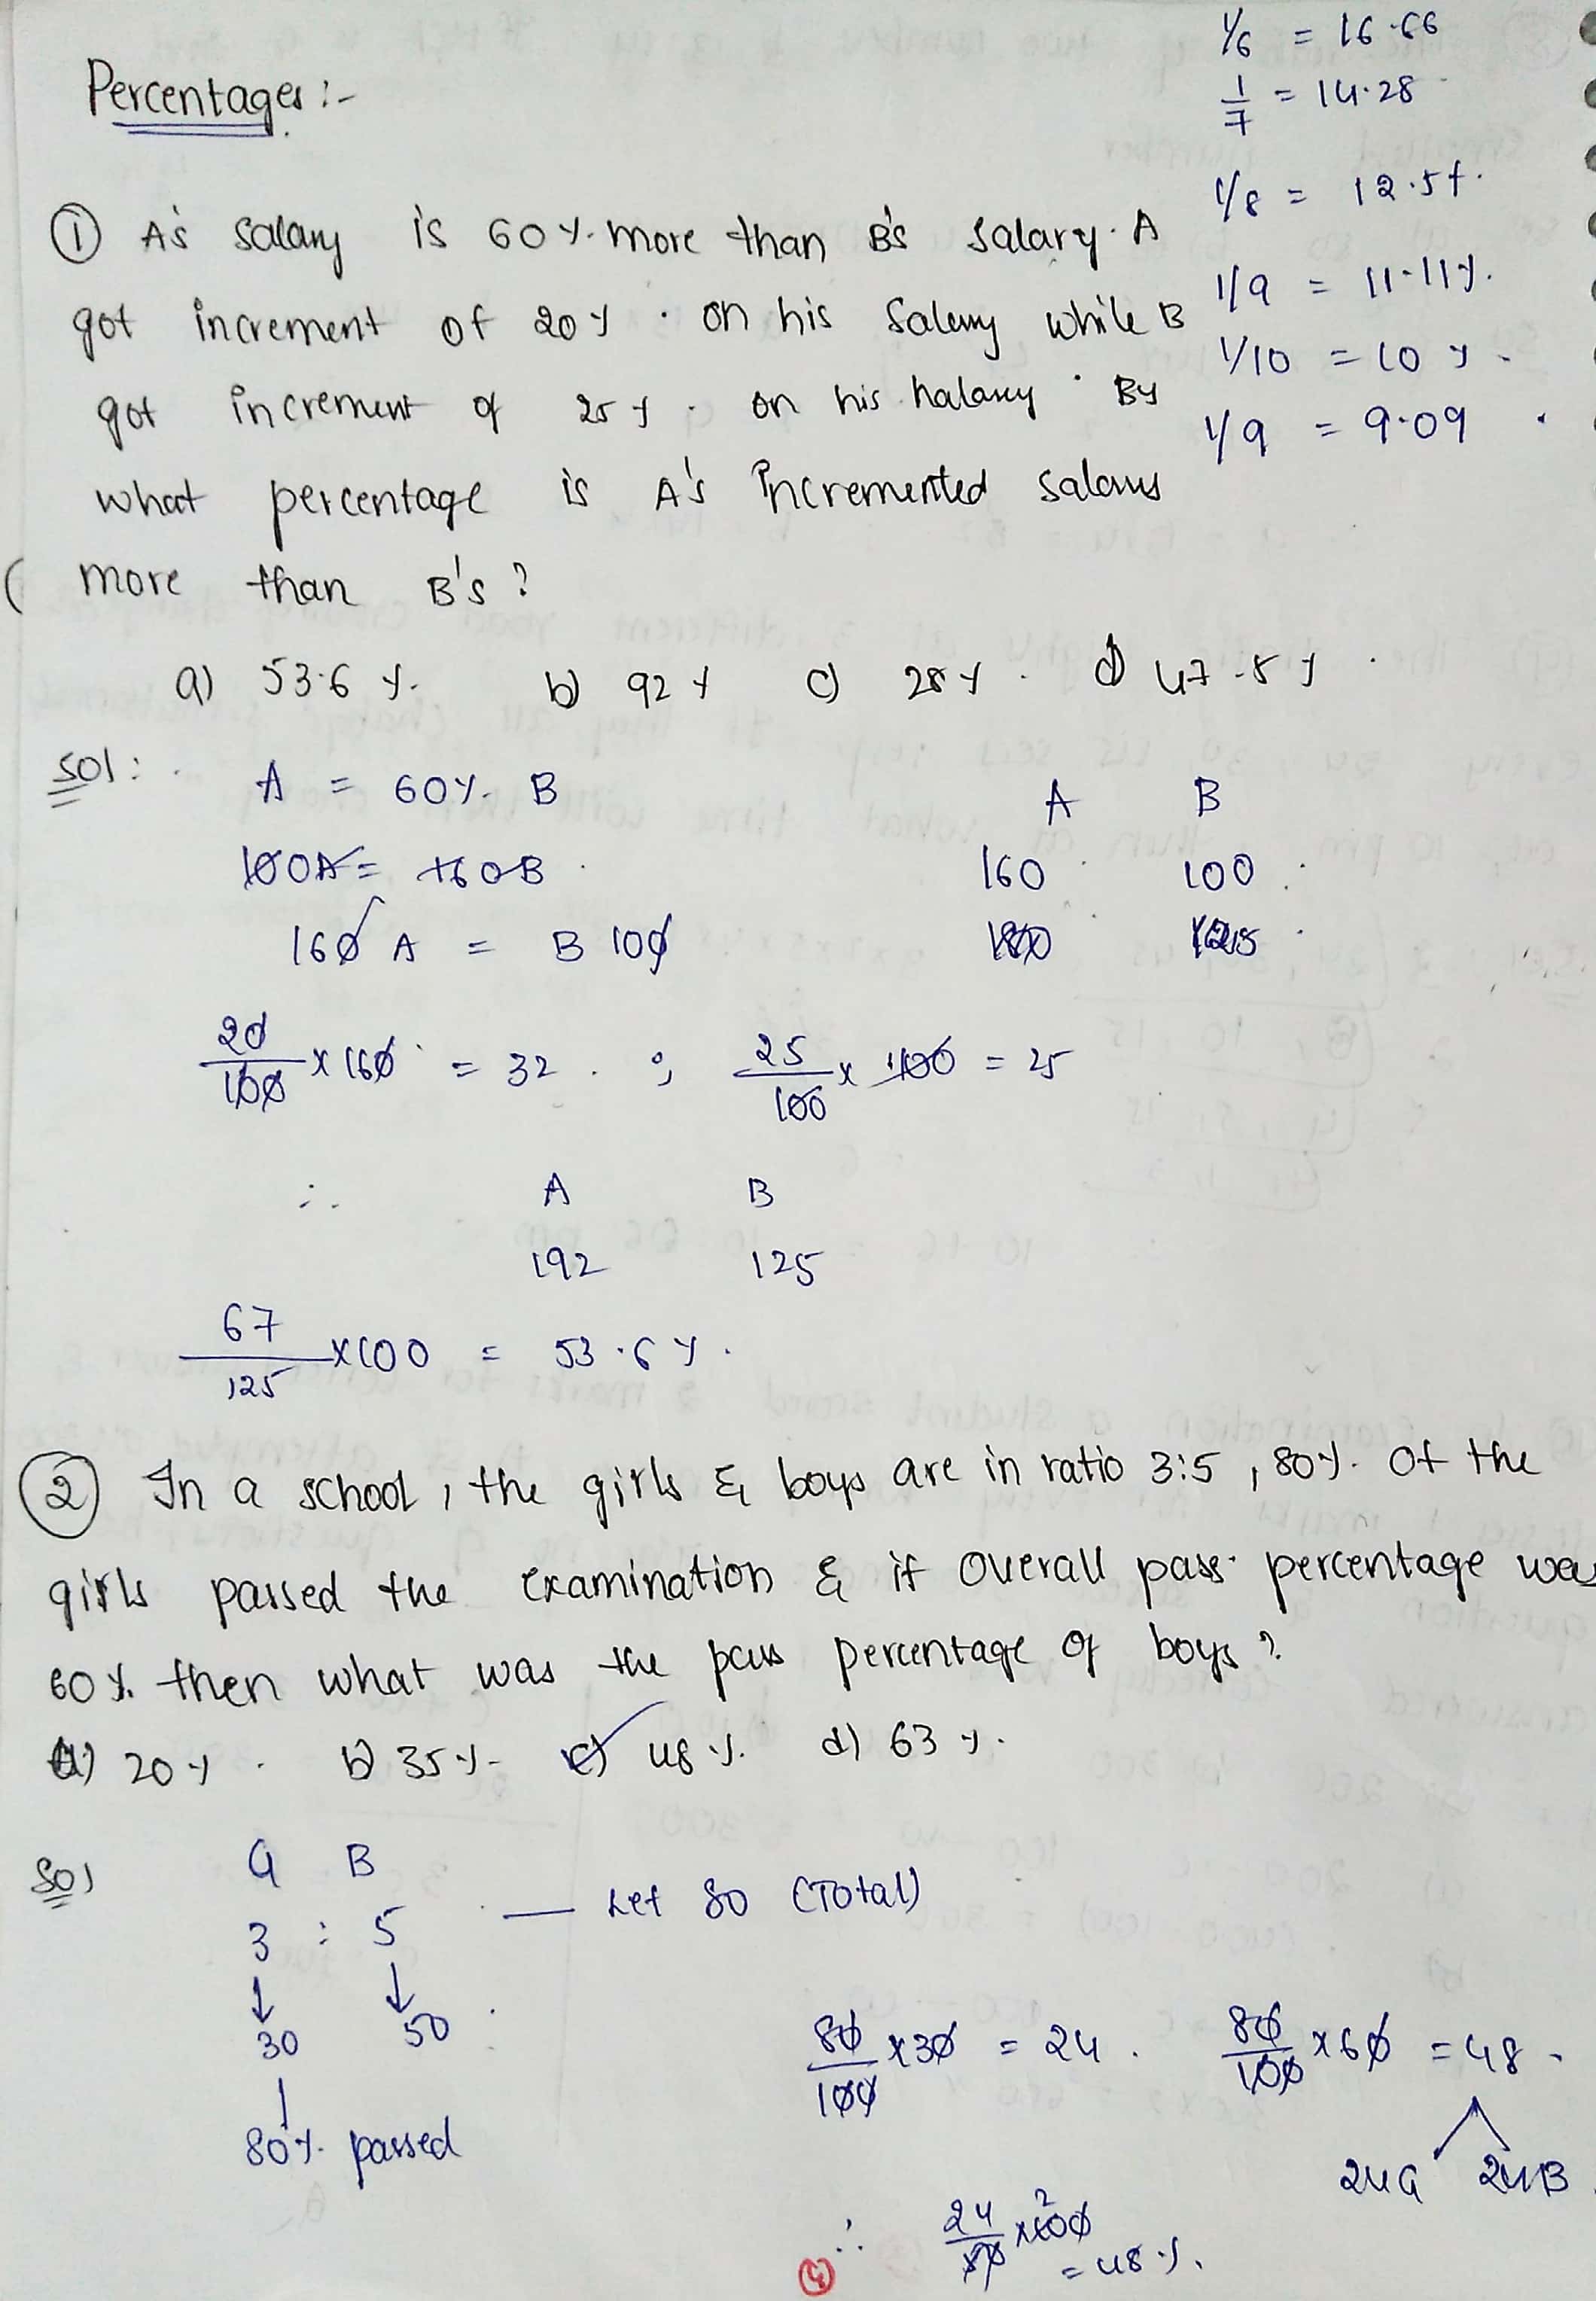 Percentages :-
1/6 = 16.66
1/7 = 14.28
1/8 = 12.5%.
1/9 = 11.11%.
1/10 = 10%.
1/9 = 9.09
① A's salary is 60%. more than B's salary. A
got increment of 20%. on his salary while B
got increment of 25%. on his halary. By
what percentage is A's incremented salary
( more than B's?
a) 53.6%. b) 92% c) 28%. d) 47.5%.
Sol:
A = 60%. B
100A = 160B
160 A = B 100
A B
160 100
180 125
20/100 x 160 = 32. ; 25/100 x 100 = 25
∴ A B
192 125
67/125 x 100 = 53.6%.
② In a school, the girls & boys are in ratio 3:5, 80%. Of the
girls passed the examination & if overall pass percentage was
60%. then what was the pass percentage of boys?
a) 20%. b) 35%. c) 48%. d) 63%.
Sol
G B
3 : 5 — Let 80 (Total)
↓ ↓
30 50
80%. passed
80/100 x 30 = 24. 80/100 x 60 = 48.
24G 24B
∴ 24/50 x 100 2
= 48%.
4